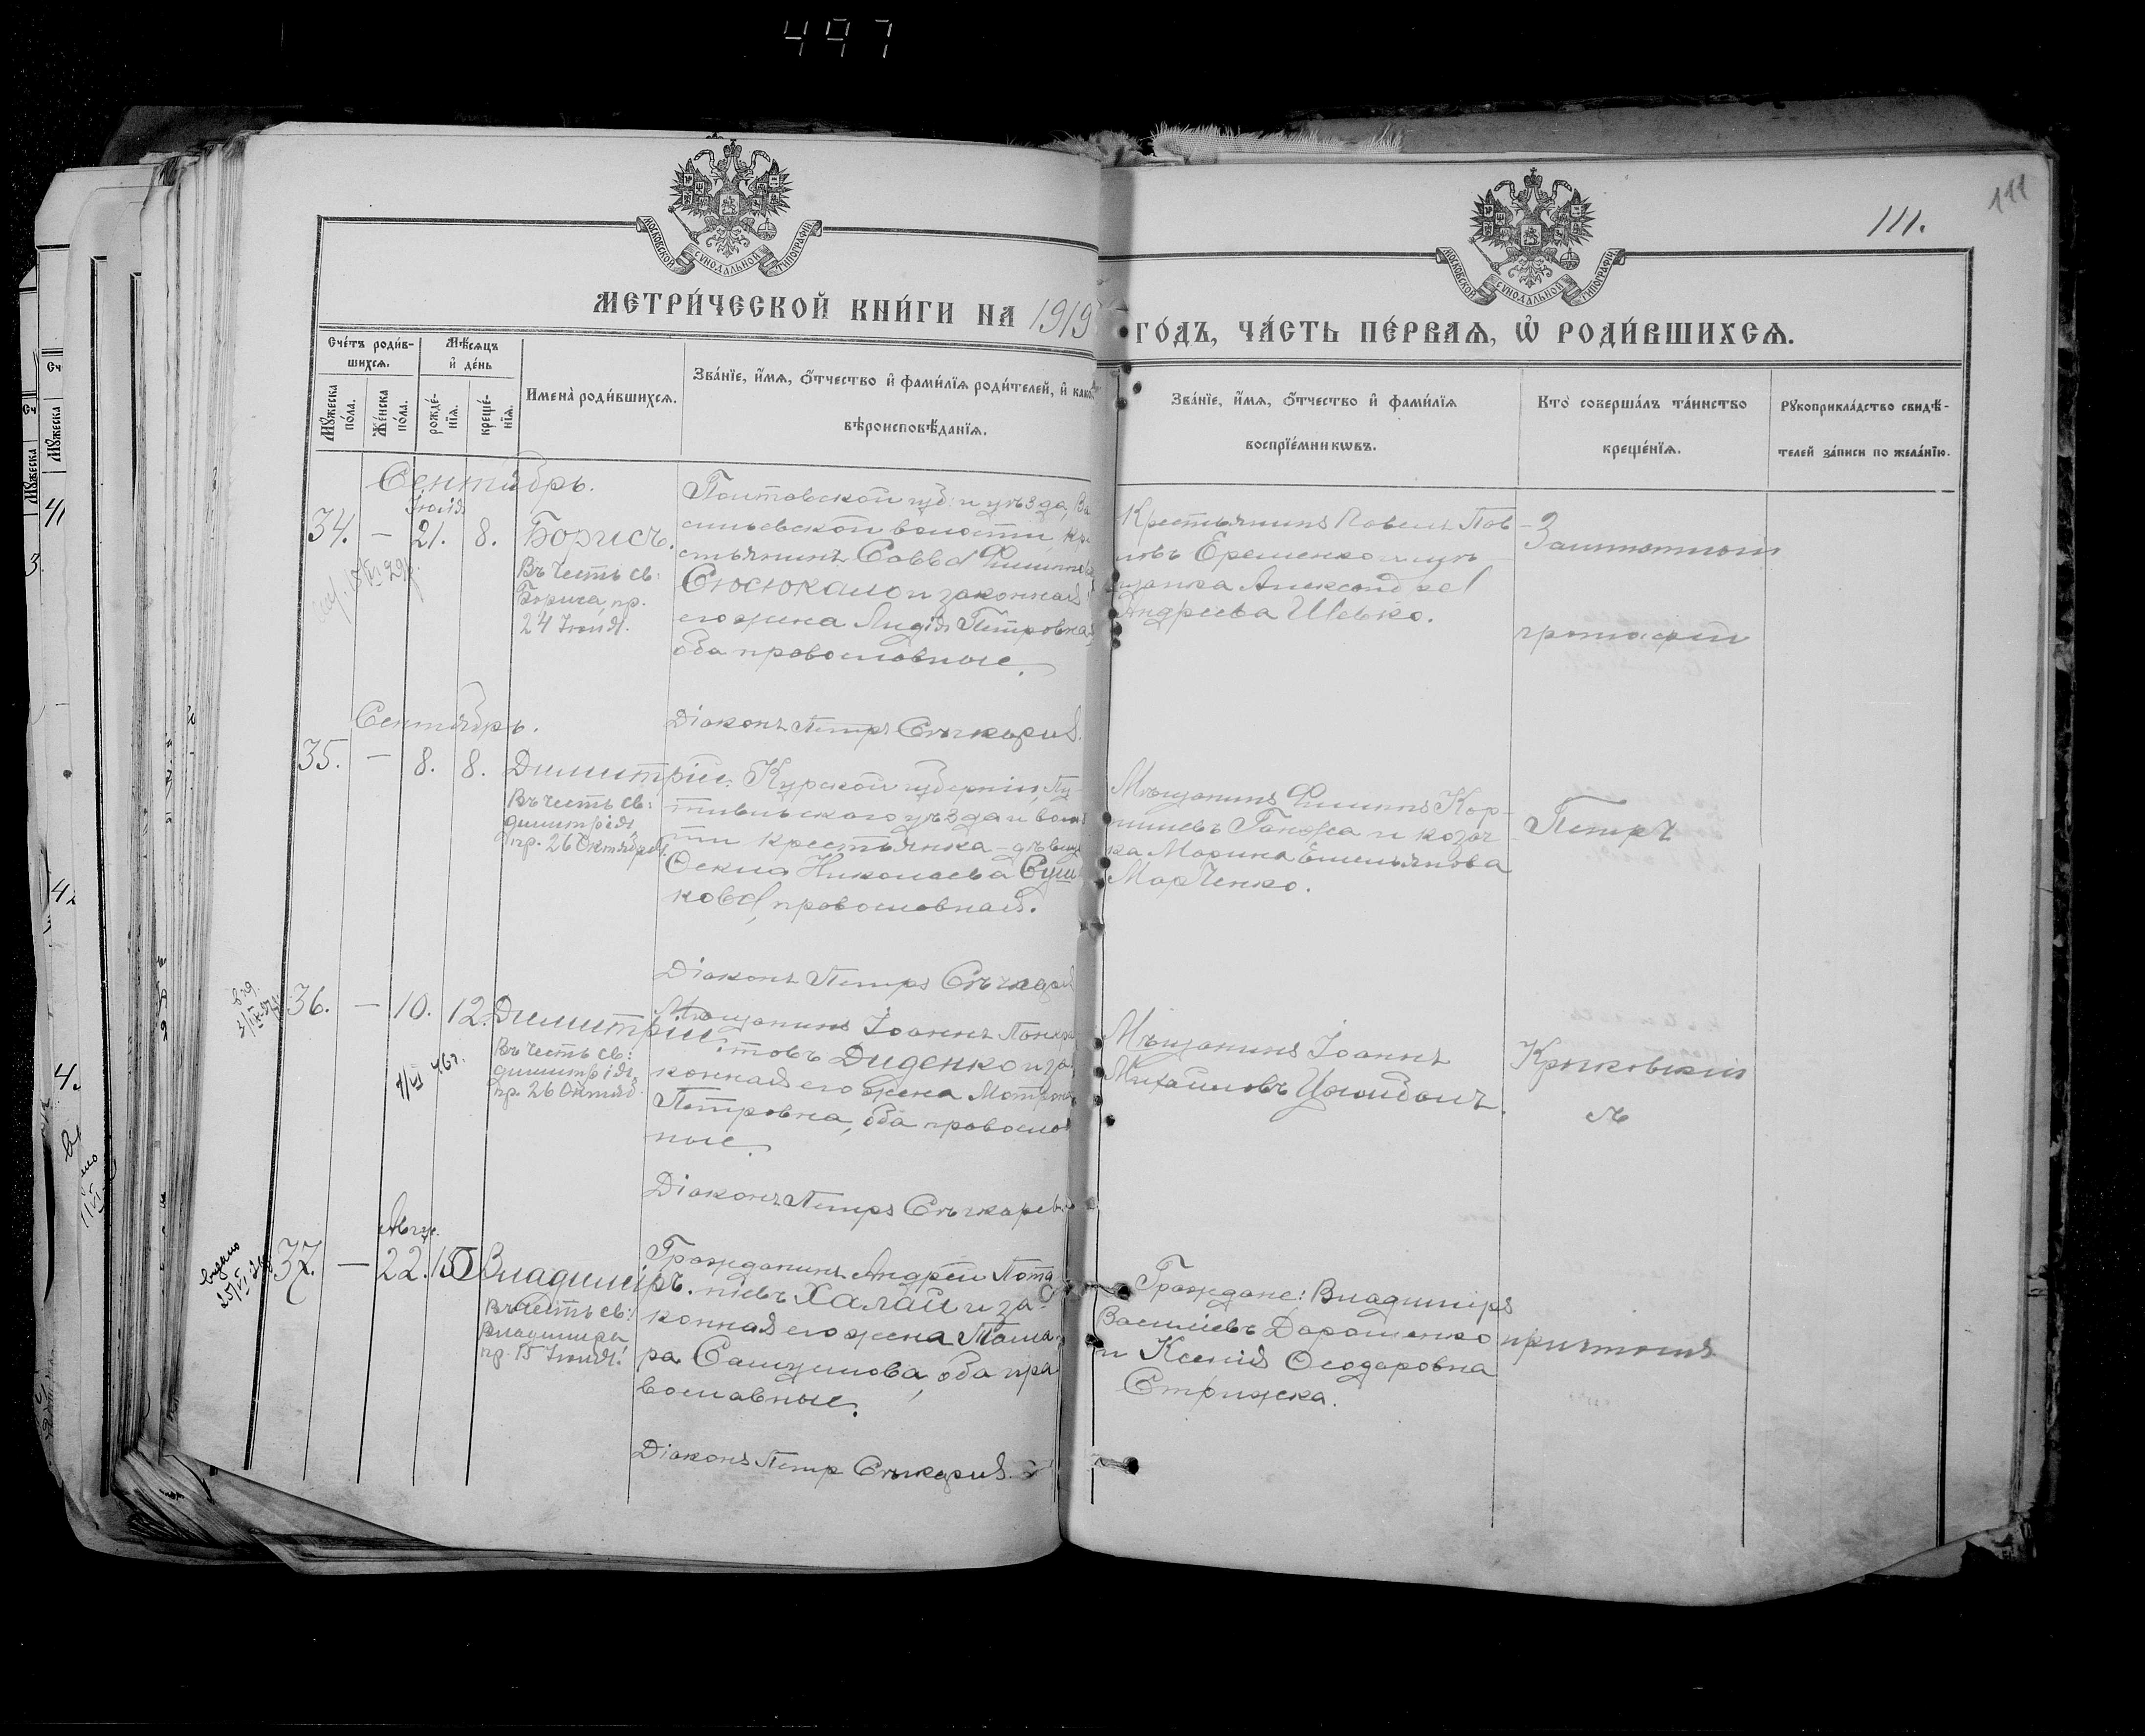 497
111.
111
МОСКОВСКОЙ СѴНОДАЛЬНОЙ ТИПОГРАФІИ
МОСКОВСКОЙ СѴНОДАЛЬНОЙ ТИПОГРАФІИ
МЕТРИ́ЧЕСКОЙ КНИ́ГИ НА 1919
ГО́ДЪ, ЧА́СТЬ ПЕ́РВАЯ, Ѡ҆ РОДИ́ВШИХСЯ.
Сче́тъ роди́в-
шихся.
Мѣ́сяцъ
и҆ де́нь
Мꙋ́жеска
по́ла.
Же́нска
по́ла.
рожде́-
нїя.
креще́-
нїя.
Имена̀ роди́вшихся.
Зва́нїе, и҆́мя, ѻ҆́тчество и҆ фами́лїя роди́телей, и҆ како
вѣроисповѣ́данїя.
Зва́нїе, и҆́мя, ѻ҆́тчество и҆ фами́лїя
воспрїе́мникѡвъ.
Кто̀ соверша́лъ та́инство
креще́нїя.
Рꙋкоприкла́дство свидѣ́-
телей за́писи по жела́нїю.
Сентябрь.
Іюля
34. — 21. 8. Борисъ.
Въ честь св:
Бориса, пр.
24 Іюля.
Полтавской губ: и уѣзда, Ва
сильевской волости, кре
стьянинъ Савва Филиппов
Сюсюкало и законная
его жена Лидія Петровна,
оба православные.
Діаконъ Петръ
Крестьянинъ Павелъ Пав-
ловъ Еременко и мѣ
щанка Александра
Андреева Шевко.
Сентябрь.
35. — 8. 8. Димитрій.
Въ честь св:
Димитрія,
пр. 26 Октября.
Курской губерніи, Пу-
тивльскаго уѣзда и волос
ти крестьянка-дѣвица
Ѳекла Николаева Суш
кова, православная.
Діаконъ Петръ
Мѣщанинъ Филиппъ Кор-
ниліевъ Ганжа и козач
ка Марина Емельянова
Марченко.
Петръ
36. — 10. 12. Димитрій.
Въ честь св:
Димитрія,
пр. 26 Октяб.
Мѣщанинъ Іоаннъ Панкра
товъ Диденко и за
конная его жена Матрона
Петровна, оба православ
ные.
Діаконъ Петръ
Мѣщанинъ Іоаннъ
Михайловъ
Крюковскій
Авгус.
37. — 22. 15 Владиміръ.
Въ честь св:
Владиміра,
пр. 15 Іюля.
Гражданинъ Андрей Пота
піевъ Халай и за
конная его жена Тама
ра Самуилова, оба пра
вославные.
Діаконъ Петръ
Граждане: Владиміръ
Василіевъ Дорошенко
и Ксенія Ѳеодоровна
Стрижска.
выдано